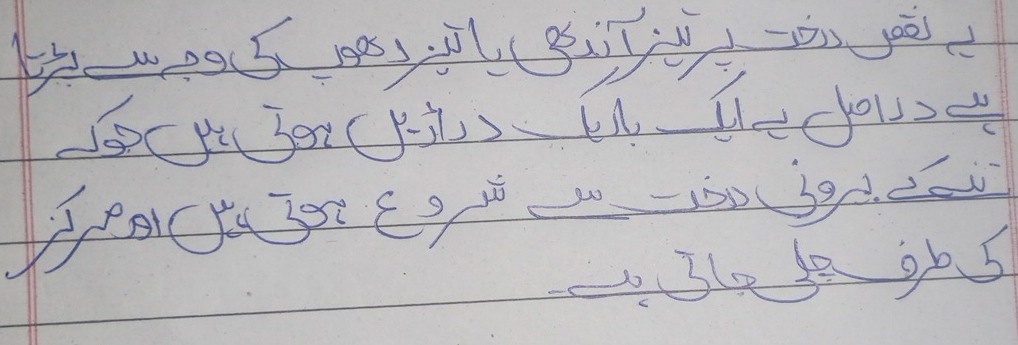 یہ نقص درخت پر تیز آندھی یا تیز دھوپ کی وجہ سے پڑتا
ہے دراصل یہ ایک باریک دراڑیں ہوتی ہیں جوکہ
تنے کے بیرونی درخت سے شروع ہوتی ہیں اور مرکز
کی طرف چلی جاتی ہے۔